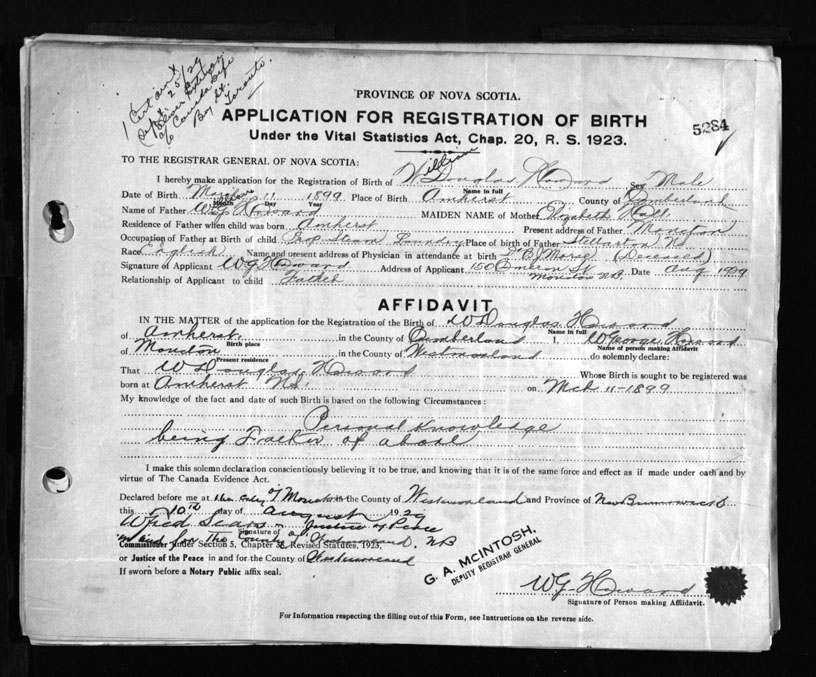 1 Cert
Sept. 25/29
% Canada Life
Bay St.
Toronto.
PROVINCE OF NOVA SCOTIA.
APPLICATION FOR REGISTRATION OF BIRTH
5284
Under the Vital Statistics Act, Chap. 20, R. S. 1923.
TO THE REGISTRAR GENERAL OF NOVA SCOTIA:
I hereby make application for the Registration of Birth of William Douglas Howard Sex Male
Date of Birth March 11 1899 Place of Birth Amherst County of Cumberland
Month Day Year Name in full
Name of Father W G Howard MAIDEN NAME of Mother Elizabeth Hall
Residence of Father when child was born Amherst Present address of Father Moncton
Occupation of Father at Birth of child Prop Steam Laundry Place of birth of Father Stellarton NS
Race English Name and present address of Physician in attendance at birth Morse (Deceased)
Signature of Applicant W G Howard Address of Applicant 150 Cameron St Moncton NB. Date Aug 1929
Relationship of Applicant to child Father
AFFIDAVIT
IN THE MATTER of the application for the Registration of the Birth of W Douglas Howard
of Amherst in the County of Cumberland I, W George Howard
Birth place Name of person making Affidavit
of Moncton in the County of Westmorland do solemnly declare:
Present residence
That W Douglas Howard Whose Birth is sought to be registered was
born at Amherst NS. on Mch 11-1899
My knowledge of the fact and date of such Birth is based on the following Circumstances:
Personal Knowledge
being Father of above
I make this solemn declaration conscientiously believing it to be true, and knowing that it is of the same force and effect as if made under oath and by
virtue of The Canada Evidence Act.
Declared before me at the City of Moncton in the County of Westmorland and Province of New Brunswick
this 10th day of August 1929
Alfred Sears Justice of Peace
Signature of
in and for the County of Westmorland, NB
Commissioner under Section 5, Chapter 38, Revised Statutes, 1923,
or Justice of the Peace in and for the County of Westmorland
If sworn before a Notary Public affix seal.
G. A. McINTOSH,
DEPUTY REGISTRAR GENERAL
W G Howard
Signature of Person making Affidavit.
For Information respecting the filling out of this Form, see Instructions on the reverse side.